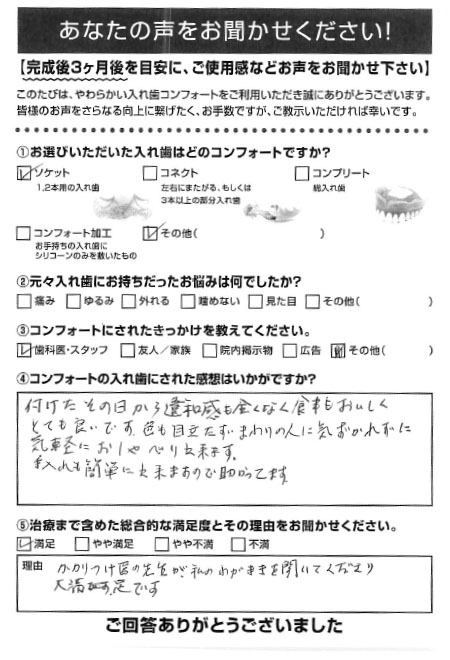 あなたの声をお聞かせください!
【完成後3ヶ月後を目安に、ご使用感などお声をお聞かせ下さい】
このたびは、やわらかい入れ歯コンフォートをご利用いただき誠にありがとうございます。
皆様のお声をさらなる向上に繋げたく、お手数ですが、ご教示いただければ幸いです。
①お選びいただいた入れ歯はどのコンフォートですか?
ソケット コネクト コンプリート
1,2本用の入れ歯 左右にまたがる、もしくは 総入れ歯
3本以上の部分入れ歯
コンフォート加工 その他( )
お手持ちの入れ歯に
シリコーンのみを敷いたもの
②元々入れ歯にお持ちだったお悩みは何でしたか?
痛み ゆるみ 外れる 噛めない 見た目 その他( )
③コンフォートにされたきっかけを教えてください。
歯科医・スタッフ 友人/家族 院内掲示物 広告 その他( )
④コンフォートの入れ歯にされた感想はいかがですか?
付けたその日から違和感も全くなく食事もおいしく
とても良いです。色も目立たずまわりの人に気ずかれずに
気軽におしゃべり出来ます。
手入れも簡単に出来ますので助かってます
⑤治療まで含めた総合的な満足度とその理由をお聞かせください。
満足 やや満足 やや不満 不満
理由 かかりつけ医の先生が私のわがままを聞いてくださり
大満足です
ご回答ありがとうございました